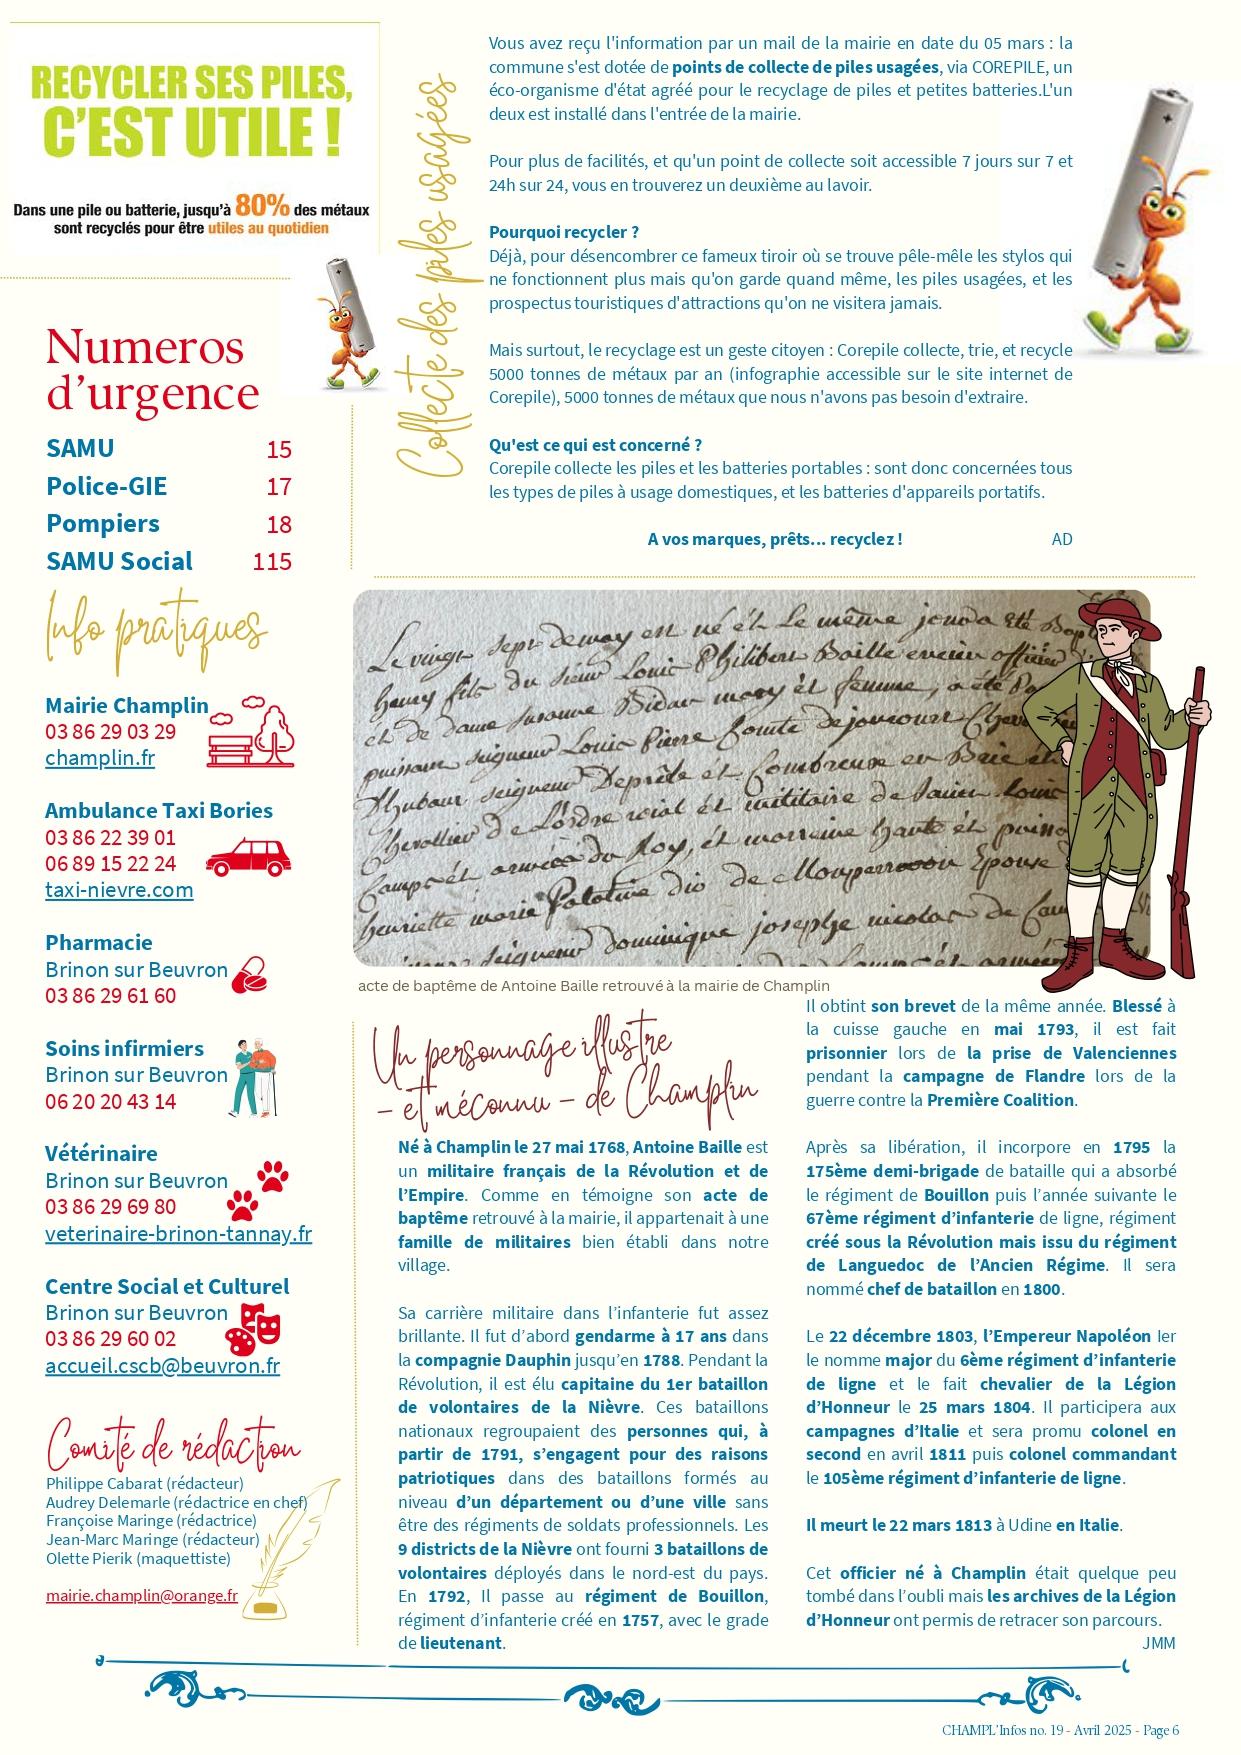 RECYCLER SES PILES,
C'EST UTILE !
Dans une pile ou batterie, jusqu'à 80% des métaux
sont recyclés pour être utiles au quotidien
Collecte des piles usagées
Vous avez reçu l'information par un mail de la mairie en date du 05 mars : la
commune s'est dotée de points de collecte de piles usagées, via COREPILE, un
éco-organisme d'état agréé pour le recyclage de piles et petites batteries.L'un
deux est installé dans l'entrée de la mairie.
Pour plus de facilités, et qu'un point de collecte soit accessible 7 jours sur 7 et
24h sur 24, vous en trouverez un deuxième au lavoir.
Pourquoi recycler ?
Déjà, pour désencombrer ce fameux tiroir où se trouve pêle-mêle les stylos qui
ne fonctionnent plus mais qu'on garde quand même, les piles usagées, et les
prospectus touristiques d'attractions qu'on ne visitera jamais.
Mais surtout, le recyclage est un geste citoyen : Corepile collecte, trie, et recycle
5000 tonnes de métaux par an (infographie accessible sur le site internet de
Corepile), 5000 tonnes de métaux que nous n'avons pas besoin d'extraire.
Qu'est ce qui est concerné ?
Corepile collecte les piles et les batteries portables : sont donc concernées tous
les types de piles à usage domestiques, et les batteries d'appareils portatifs.
A vos marques, prêts... recyclez ! AD
Numeros
d'urgence
SAMU 15
Police-GIE 17
Pompiers 18
SAMU Social 115
Info pratiques
Mairie Champlin
03 86 29 03 29
champlin.fr
Ambulance Taxi Bories
03 86 22 39 01
06 89 15 22 24
taxi-nievre.com
Pharmacie
Brinon sur Beuvron
03 86 29 61 60
Soins infirmiers
Brinon sur Beuvron
06 20 20 43 14
Vétérinaire
Brinon sur Beuvron
03 86 29 69 80
veterinaire-brinon-tannay.fr
Centre Social et Culturel
Brinon sur Beuvron
03 86 29 60 02
accueil.cscb@beuvron.fr
Comité de rédaction
Philippe Cabarat (rédacteur)
Audrey Delemarle (rédactrice en chef)
Françoise Maringe (rédactrice)
Jean-Marc Maringe (rédacteur)
Olette Pierik (maquettiste)
mairie.champlin@orange.fr
Le vingt sept de may est né et Le même jour a été
henry fils du sieur Louis Philibert Baille ancien officier
et de dame Susanne
puissant seigneur Louis Pierre Comte de jaucourt
seigneur et Combreux en Brie
Chevallier de Lordre roial et militaire de Saint Louis
Camps et armées du Roy, et marraine haute et
henriette marie Palatine dio de Epouse
seigneur Dominique josephe nicolas de
acte de baptême de Antoine Baille retrouvé à la mairie de Champlin
Un personnage illustre
– et méconnu – de Champlin
Né à Champlin le 27 mai 1768, Antoine Baille est
un militaire français de la Révolution et de
l'Empire. Comme en témoigne son acte de
baptême retrouvé à la mairie, il appartenait à une
famille de militaires bien établi dans notre
village.
Sa carrière militaire dans l'infanterie fut assez
brillante. Il fut d'abord gendarme à 17 ans dans
la compagnie Dauphin jusqu'en 1788. Pendant la
Révolution, il est élu capitaine du 1er bataillon
de volontaires de la Nièvre. Ces bataillons
nationaux regroupaient des personnes qui, à
partir de 1791, s'engagent pour des raisons
patriotiques dans des bataillons formés au
niveau d'un département ou d'une ville sans
être des régiments de soldats professionnels. Les
9 districts de la Nièvre ont fourni 3 bataillons de
volontaires déployés dans le nord-est du pays.
En 1792, Il passe au régiment de Bouillon,
régiment d'infanterie créé en 1757, avec le grade
de lieutenant.
Il obtint son brevet de la même année. Blessé à
la cuisse gauche en mai 1793, il est fait
prisonnier lors de la prise de Valenciennes
pendant la campagne de Flandre lors de la
guerre contre la Première Coalition.
Après sa libération, il incorpore en 1795 la
175ème demi-brigade de bataille qui a absorbé
le régiment de Bouillon puis l'année suivante le
67ème régiment d'infanterie de ligne, régiment
créé sous la Révolution mais issu du régiment
de Languedoc de l'Ancien Régime. Il sera
nommé chef de bataillon en 1800.
Le 22 décembre 1803, l'Empereur Napoléon Ier
le nomme major du 6ème régiment d'infanterie
de ligne et le fait chevalier de la Légion
d'Honneur le 25 mars 1804. Il participera aux
campagnes d'Italie et sera promu colonel en
second en avril 1811 puis colonel commandant
le 105ème régiment d'infanterie de ligne.
Il meurt le 22 mars 1813 à Udine en Italie.
Cet officier né à Champlin était quelque peu
tombé dans l'oubli mais les archives de la Légion
d'Honneur ont permis de retracer son parcours.
JMM
CHAMPL'Infos no. 19 - Avril 2025 - Page 6